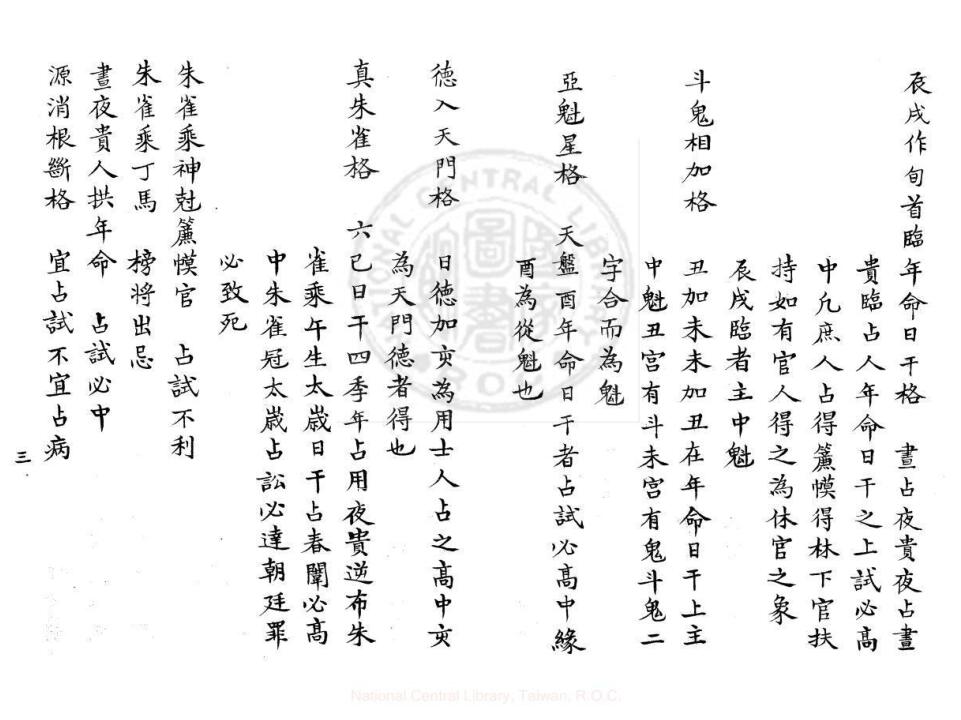 辰戌作旬首臨年命日干格　晝占夜貴夜占晝
貴臨占人年命日干之上試必高
中凢庶人占得簾幙得林下官扶
持如有官人得之為休官之象
辰戌臨者主中魁
斗鬼相加格　丑加未未加丑在年命日干上主
中魁丑宫有斗未宫有鬼斗鬼二
字合而為魁
亞魁星格　天盤酉年命日干者占試必高中緣
酉為從魁也
德入天門格　日德加亥為用士人占之高中亥
為天門德者得也
真朱雀格　六己日干四季年占用夜貴逆布朱
雀乘午生太嵗日干占春闈必高
中朱雀冠太嵗占訟必達朝廷罪
必致死
朱雀乘神尅簾幙官　占試不利
朱雀乘丁馬　榜将出忌
晝夜貴人拱年命　占試必中
源消根斷格　宜占試不宜占病
三
National Central Library, Taiwan, R.O.C.